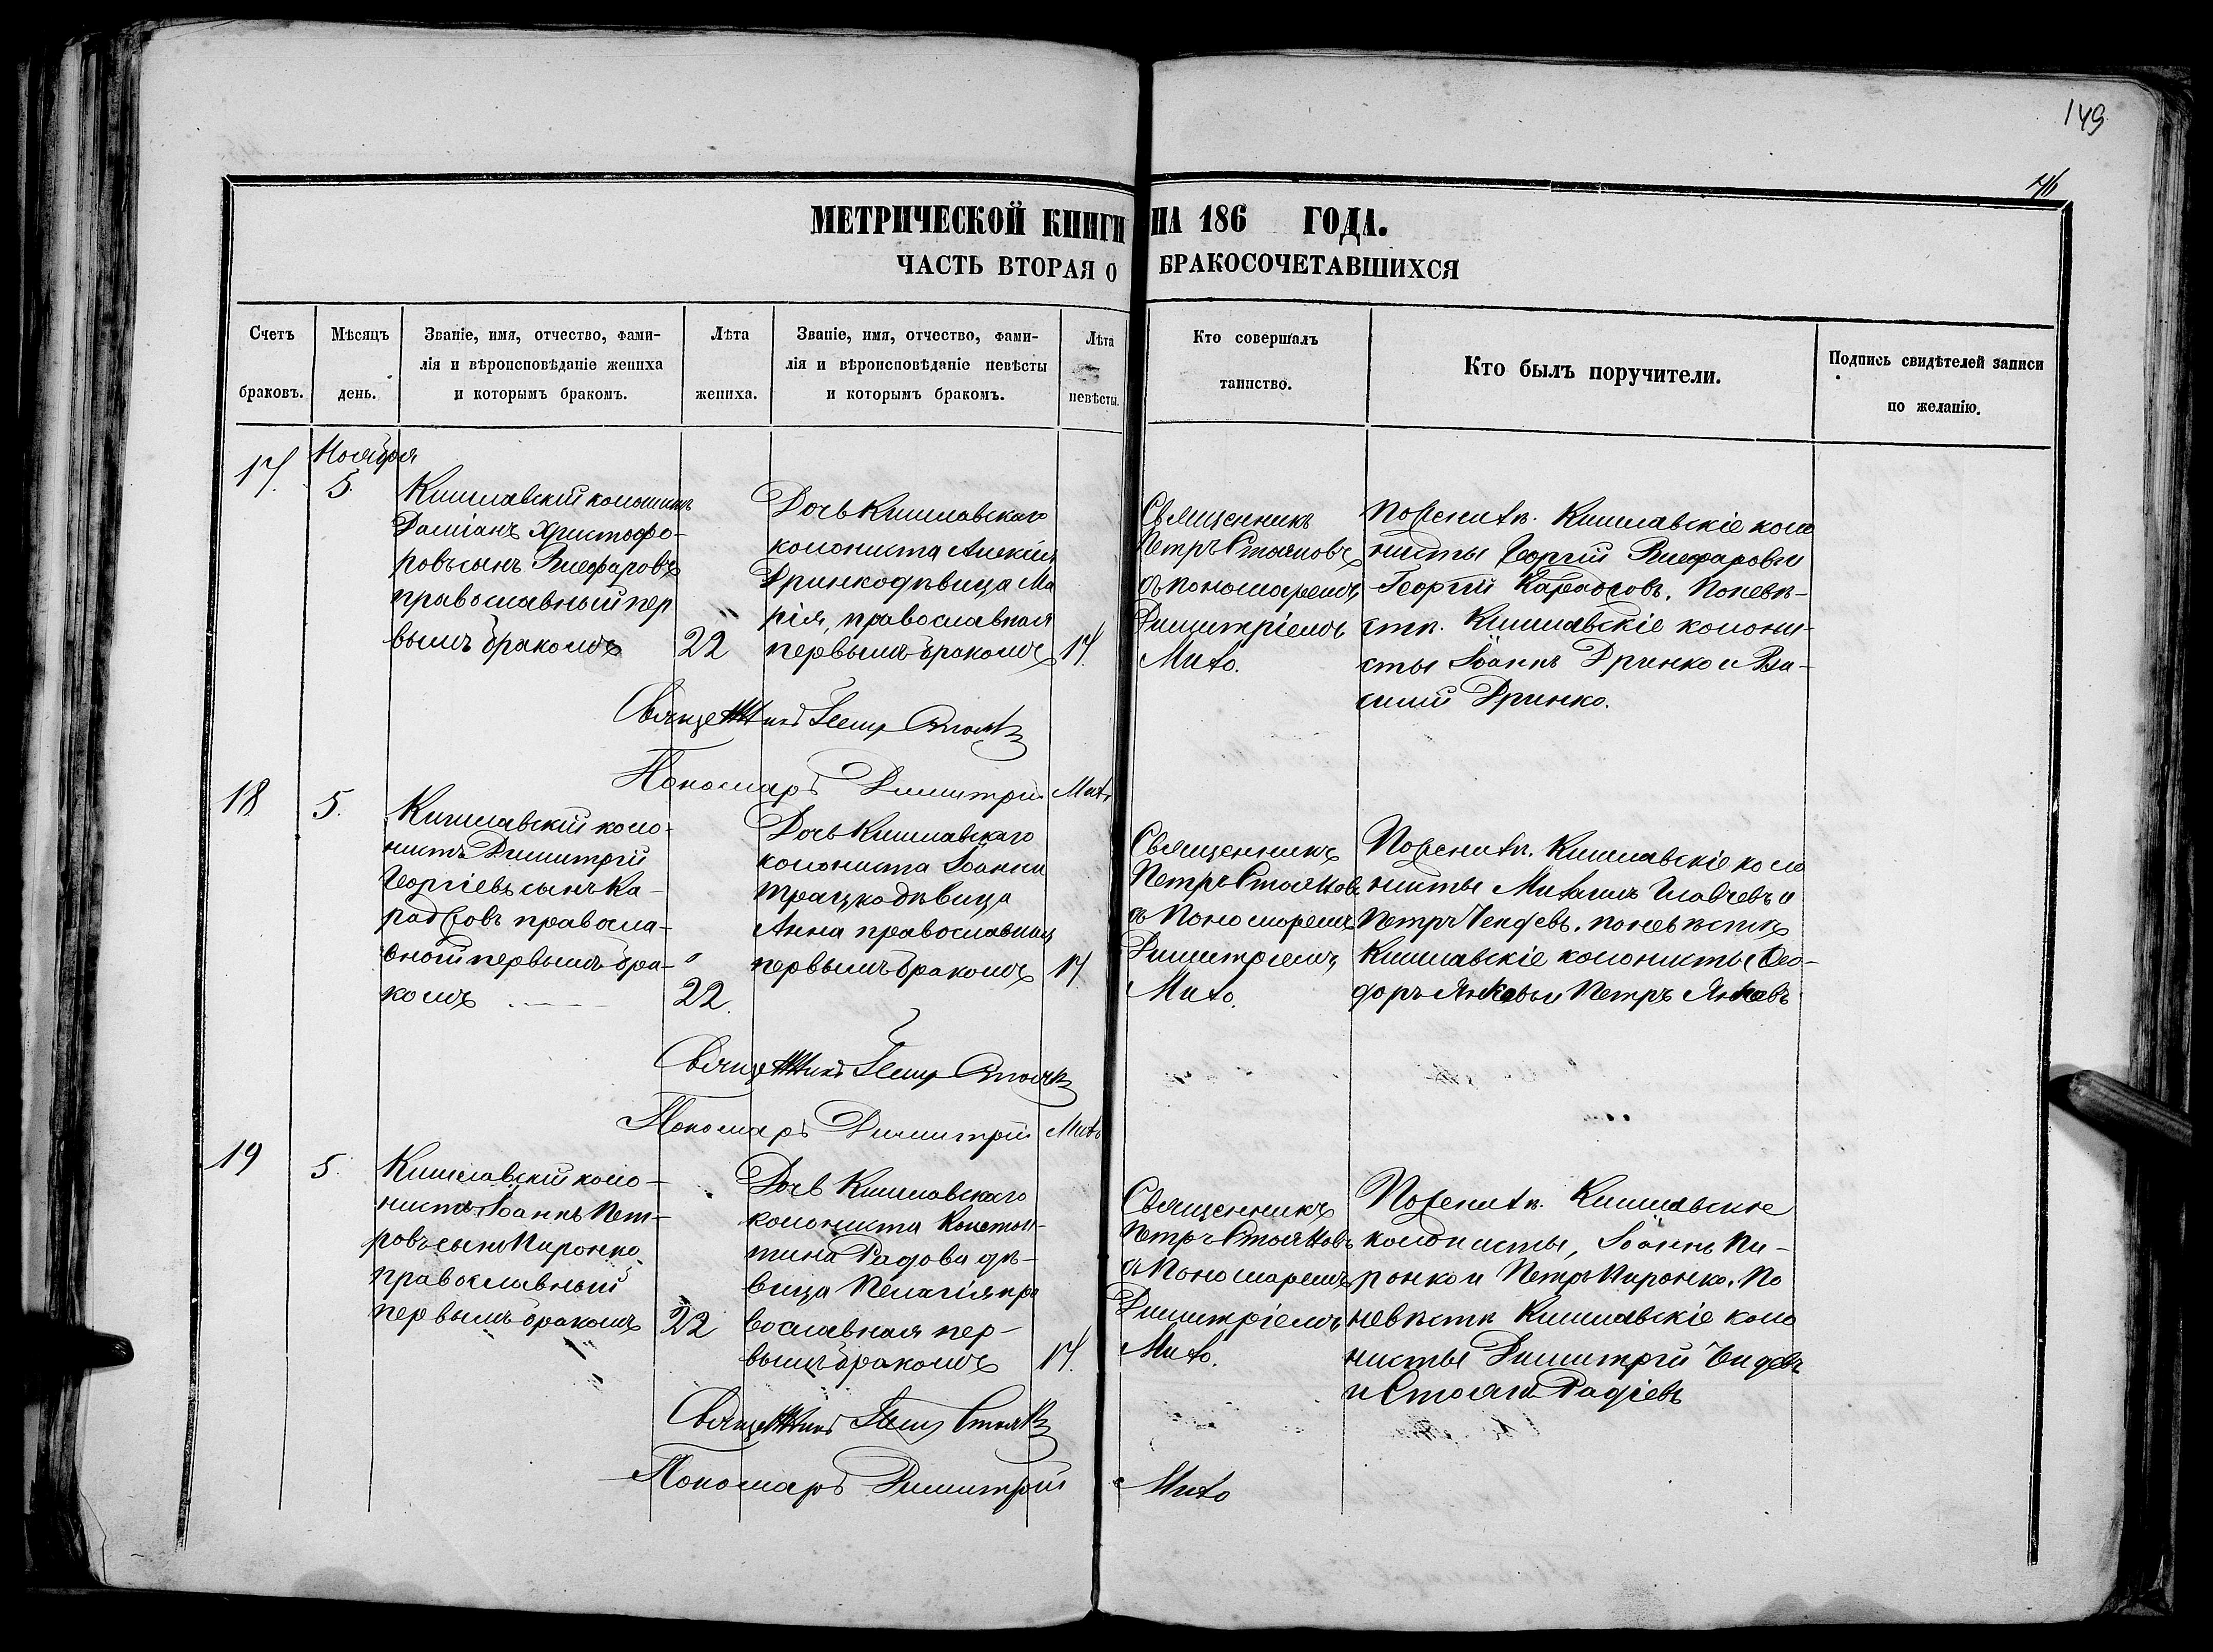 149
МЕТРИЧЕСКОЙ КНИГИ НА 186 ГОДА.
ЧАСТЬ ВТОРАЯ О БРАКОСОЧЕТАВШИХСЯ
Счетъ браковъ.
Мѣсяцъ день.
Званіе, имя, отчество, фами-
лія и вѣроисповѣданіе жениха
и которымъ бракомъ.
Лѣта жениха.
Званіе, имя, отчество, фами-
лія и вѣроисповѣданіе невѣсты
и которымъ бракомъ.
Лѣта невѣсты.
Кто совершалъ
таинство.
Кто былъ поручители.
Подпись свидѣтелей записи
по желанію.
17.
Ноября
5.
Кишлавскій колонистъ
Даміанъ Христофо-
ровъ сынъ
православный пер
вымъ бракомъ
22
Дочь Кишлавскаго
колониста Алексія
Дринко дѣвица Ма
рія, православная
первымъ бракомъ
17.
Священникъ
Петръ Стояновъ
съ пономаремъ
Димитріемъ
Михо.
По женихѣ. Кишлавскіе коло
нисты Георгій
Георгій Караджовъ. По невѣ-
стѣ. Кишлавскіе колони-
сты Іоаннъ Дринко и Ва-
силій Дринко.
Священникъ Петръ Стояновъ
Пономарь Димитрій Михо
18
5.
Кишлавскій коло-
нистъ Димитрій
Георгіевъ сынъ Ка-
раджовъ правосла-
вной первымъ бра-
комъ
22.
Дочь Кишлавскаго
колониста Іоанна
Трацко дѣвица
Анна православная
первымъ бракомъ
17
Священникъ
Петръ Стояновъ
съ Пономаремъ
Димитріемъ
Михо.
По женихѣ. Кишлавскіе коло
нисты Михаилъ Главчевъ и
Петръ по невѣстѣ
Кишлавскіе колонисты Ѳео-
доръ Янковъ и Петръ Янковъ
Священникъ Петръ Стояновъ
Пономарь Димитрій Михо
19
5.
Кишлавскій коло-
нистъ Іоаннъ Пет-
ровъ сынъ Пиронко
православный
первымъ бракомъ
22
Дочь Кишлавскаго
колониста Констан-
тина Радова дѣ-
вица Пелагія пра
вославная пер-
вымъ бракомъ
17.
Священникъ
Петръ Стояновъ
съ Пономаремъ
Димитріемъ
Михо.
По женихѣ. Кишлавскіе
колонисты, Іоаннъ Пи-
ронко и Петръ Пиронко. По
невѣстѣ Кишлавскіе коло
нисты Димитрій
и Стоянъ Радіевъ
Священникъ Петръ Стояновъ
Пономарь Димитрій Михо